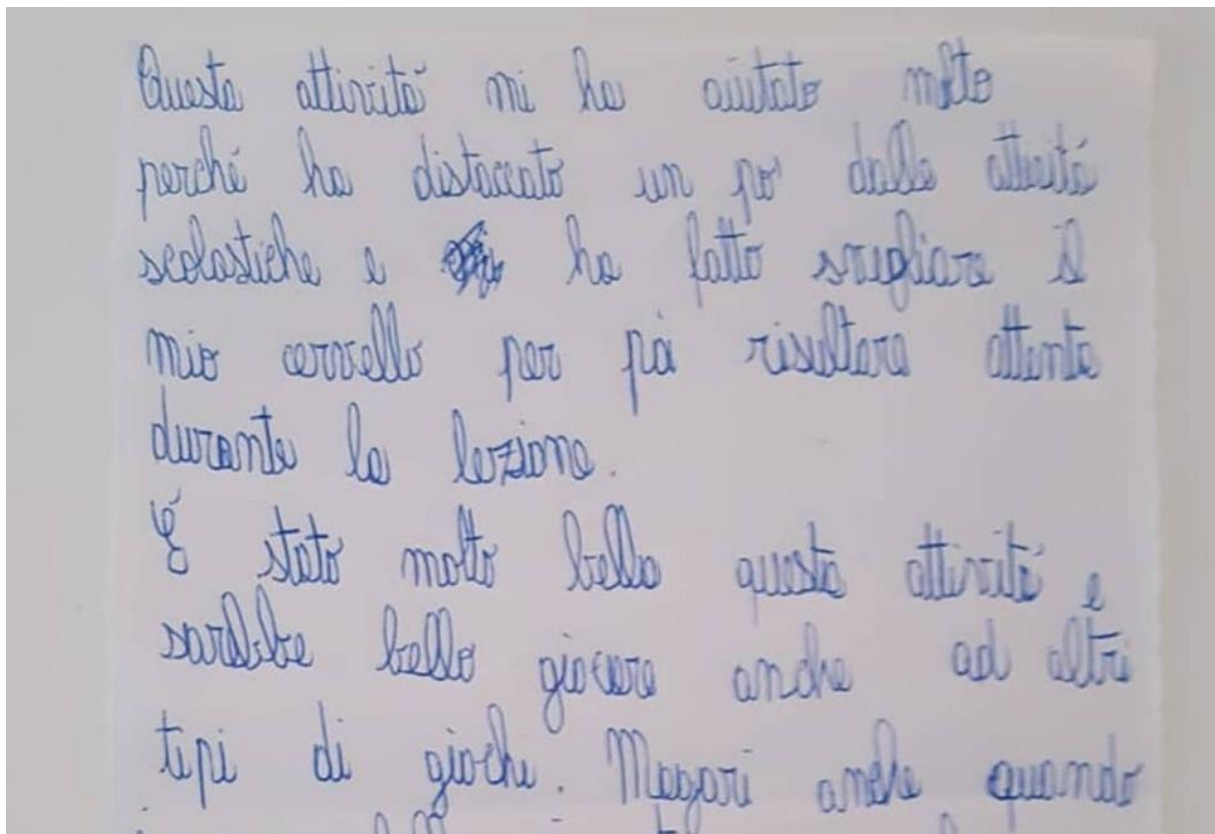 Questa attività mi ha aiutato molto
perché ha distaccato un po' dalle attività
scolastiche e ha fatto svegliare il
mio cervello per poi risultare attenta
durante la lezione.
É stato molto bello questa attività e
sarebbe bello giocare anche ad altri
tipi di giochi. Magari anche quando